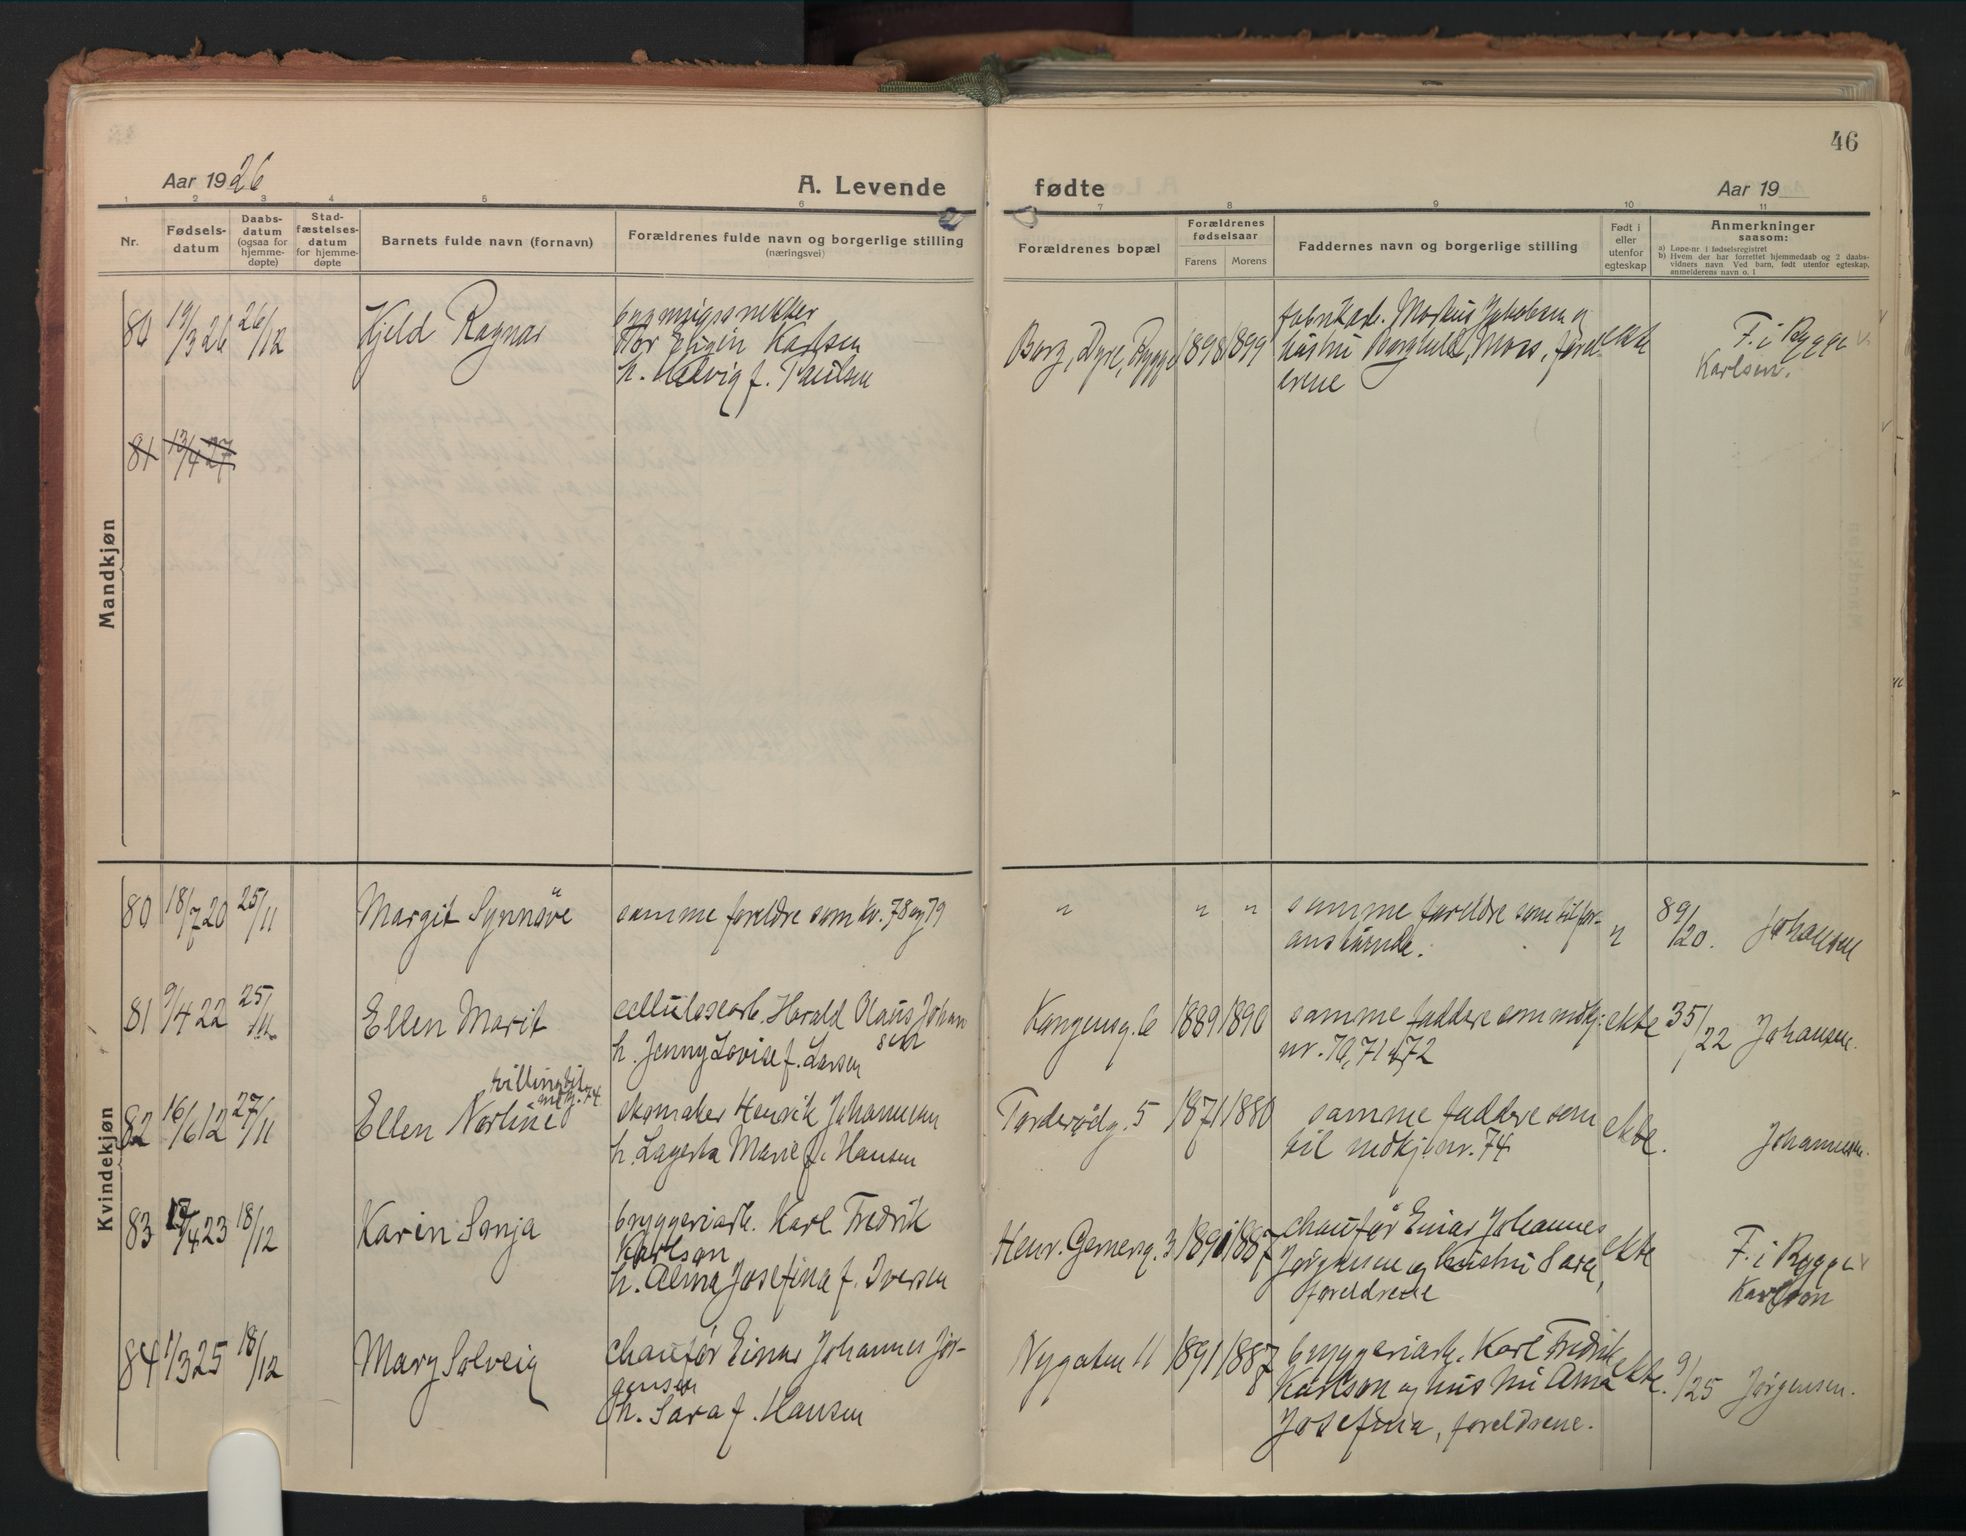 46
Aar 1926
A. Levende
fødte
Aar 19
1 2 3 4 5 6 7 8 9 10 11
Nr.
Fødsels-
datum
Daabs-
datum
(ogsaa for
hjemme-
døpte)
Stad-
fæstelses-
datum
for hjemme-
døpte
Barnets fulde navn (fornavn)
Forældrenes fulde navn og borgerlige stilling
(næringsvei)
Forældrenes bopæl
Forældrenes
fødselsaar
Farens Morens
Faddernes navn og borgerlige stilling
Født i
eller
utenfor
egteskap
Anmerkninger
saasom:
a) Løpe-nr. i fødselsregistret
b) Hvem der har forrettet hjemmedaab og 2 daabs-
vidners navn Ved barn, født utenfor egteskap,
anmelderens navn o. l
Mandkjøn
80 19/3 26 26/12 Kjeld Ragnar
bygningssnekker
Thor Eugen Karlsen
h. Hedvig f. Paulsen
Borg, Dyre, Rygge 1898 1899
fabrikarb. Markus Jakobsen og
hustru Borghild, Moss, foreld-
rene
ekte
F. i Rygge
Karlsen.
81 13/4 27
Kvindekjøn
80 18/7 20 25/11 Margit Synnöve
samme foreldre som kv. 78 og 79
" " "
samme foreldre som til for-
anstående.
"
89/20. Johansen
81 9/4 22 25/11 Ellen Marit
cellulosearb. Harald Olaus Johan
sen
h. Jenny Lovise f. Larsen
Kongensg. 6 1889 1890
samme faddere som mdkj.
nr. 70, 71 & 72
ekte
35/22 Johansen.
82 16/6 12 27/11 Ellen Norline
tvilling til
mdkj. 74
skomaker Henrik Johannesen
h. Lagerta Marie f. Hansen
Torderødg. 5 1871 1880
samme faddere som
til mdkj. nr. 74
ekte.
Johannesen.
83 17/4 23 18/12 Karin Sonja
bryggeriarb. Karl Fredrik
Karlson
h. Alma Josefina f. Iversen
Henr. Gernersg. 3 1891 1887
chauför Einar Johannes
Jörgensen og hustru Sara,
foreldrene
ekte
F. i Rygge
Karlson
84 1/3 25 18/12 Mary Solveig
chauför Einar Johannes Jör-
gensen
h. Sara f. Hansen
Nygaten 11 1891 1887
bryggeriarb. Karl Fredrik
Karlson og hustru Alma
Josefina, foreldrene.
ekte.
9/25 Jørgensen.